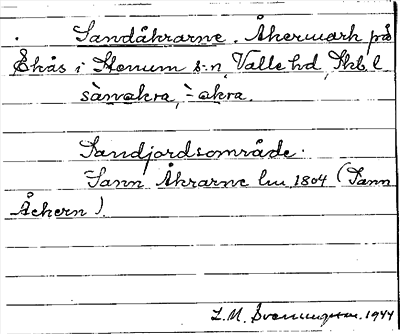 Sandåkrarne. Åkermark på
Ekås i Stenum s:n, Valle hd, Skb. l
sànakra, -akra.
Sandjordsområde.
Sann Åkrarne lm 1804 (Sann
Åckern).
L. M. Svenungsson. 1944